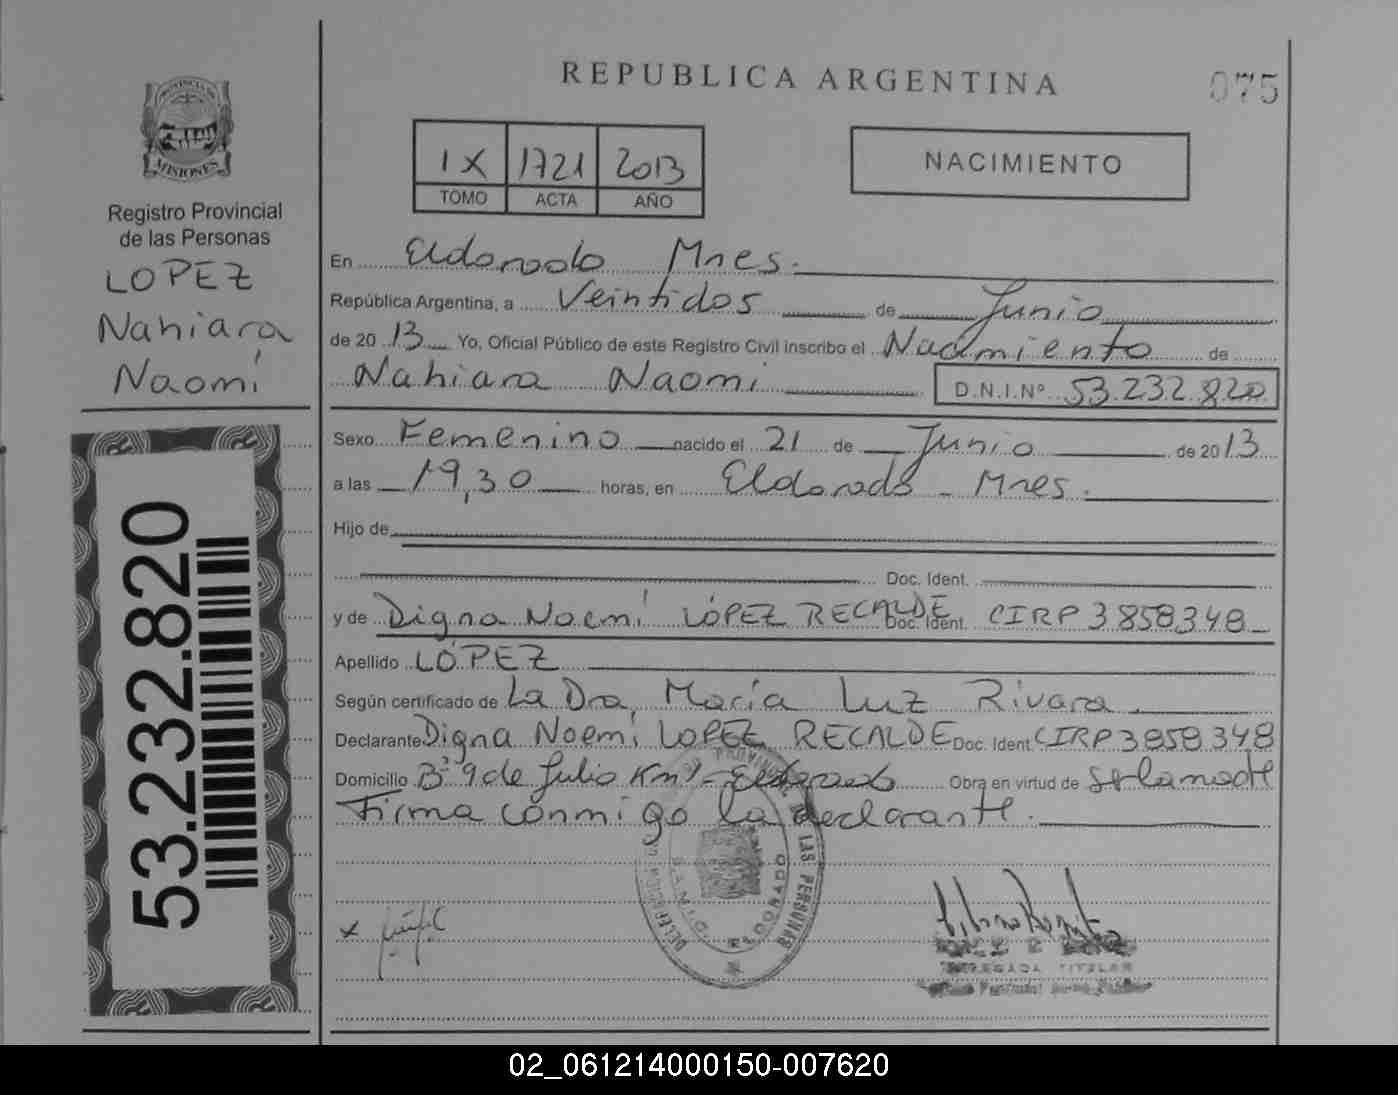 REPUBLICA ARGENTINA
075
PROVINCIA DE
MISIONES
Registro Provincial
de las Personas
LOPEZ
Nahiara
Naomí
53.232.820
IX 1721 2013
TOMO ACTA AÑO
NACIMIENTO
En Eldorado Mnes.
República Argentina, a Veintidos de Junio
de 20 13 Yo, Oficial Público de este Registro Civil inscribo el Nacimiento de
Nahiara Naomi D.N.I.Nº 53.232.820
Sexo Femenino nacido el 21 de Junio de 2013
a las 19,30 horas, en Eldorado - Mnes.
Hijo de
Doc. Ident.
y de Digna Noemí LÓPEZ RECALDE Doc. Ident. CIRP 3858348
Apellido LÓPEZ
Según certificado de La Dra. María Luz Rivara.
Declarante Digna Noemí LOPEZ RECALDE Doc. Ident CIRP3858348
Domicilio Bº 9 de Julio Km 1 - Eldorado Obra en virtud de
Firma conmigo la declarante.
LAS PERSONAS
ELDORADO
DELEGADA TITULAR
02_061214000150-007620